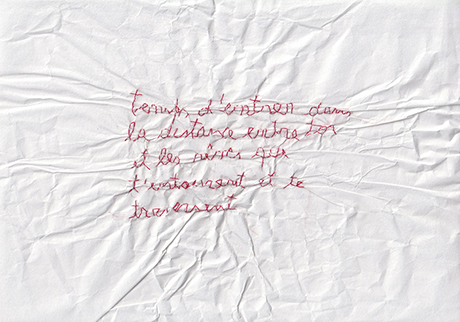 temps d'entrer dans
la distance entre toi
et les rêves qui
t'entourent et te
traversent